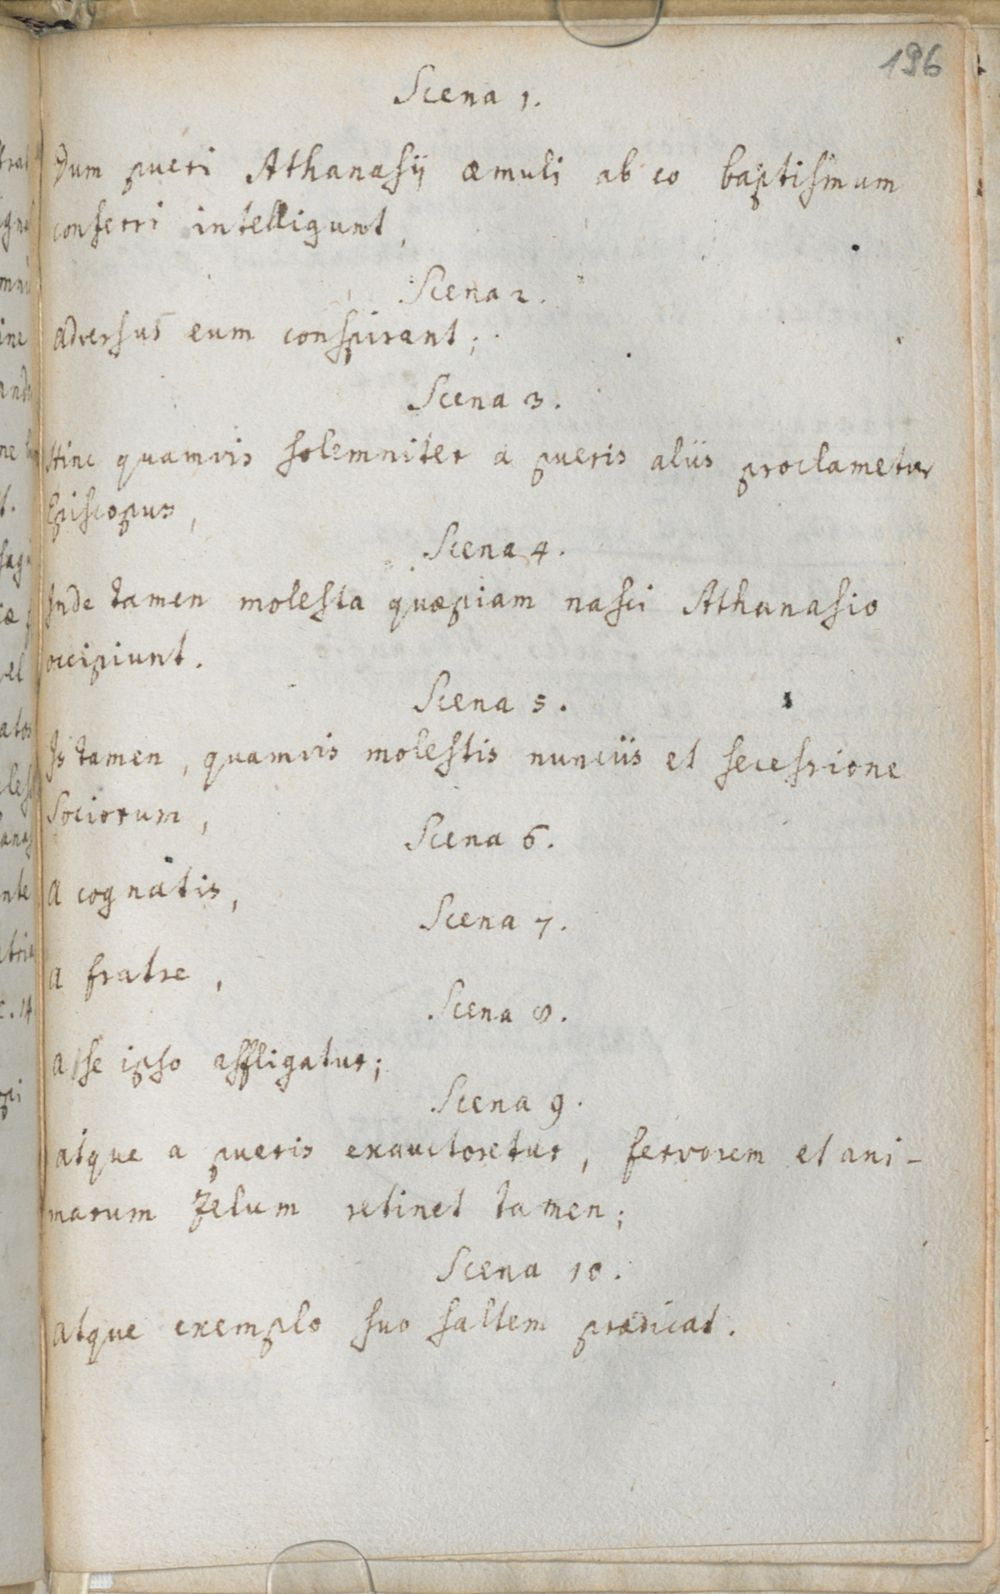 196
Scena 1.
Dum pueri Athanasij æmuli ab eo baptismum
conferri intelligunt,
Scena 2.
adversus eum conspirant;
Scena 3.
Hinc quamvis solemniter a pueris aliis proclametur
Episcopus,
Scena 4.
Inde tamen molesta quæpiam nasci Athanasio
occipiunt.
Scena 5.
Is tamen, quamvis molestis nunciis et secessione
Sociorum,
Scena 6.
A cognatis,
Scena 7.
A fratre,
Scena 8.
a se ipso affligatur;
Scena 9.
atque a pueris exauctoretur, fervorem et ani-
marum Zelum retinet tamen;
Scena 10.
atque exemplo suo saltem prædicat.